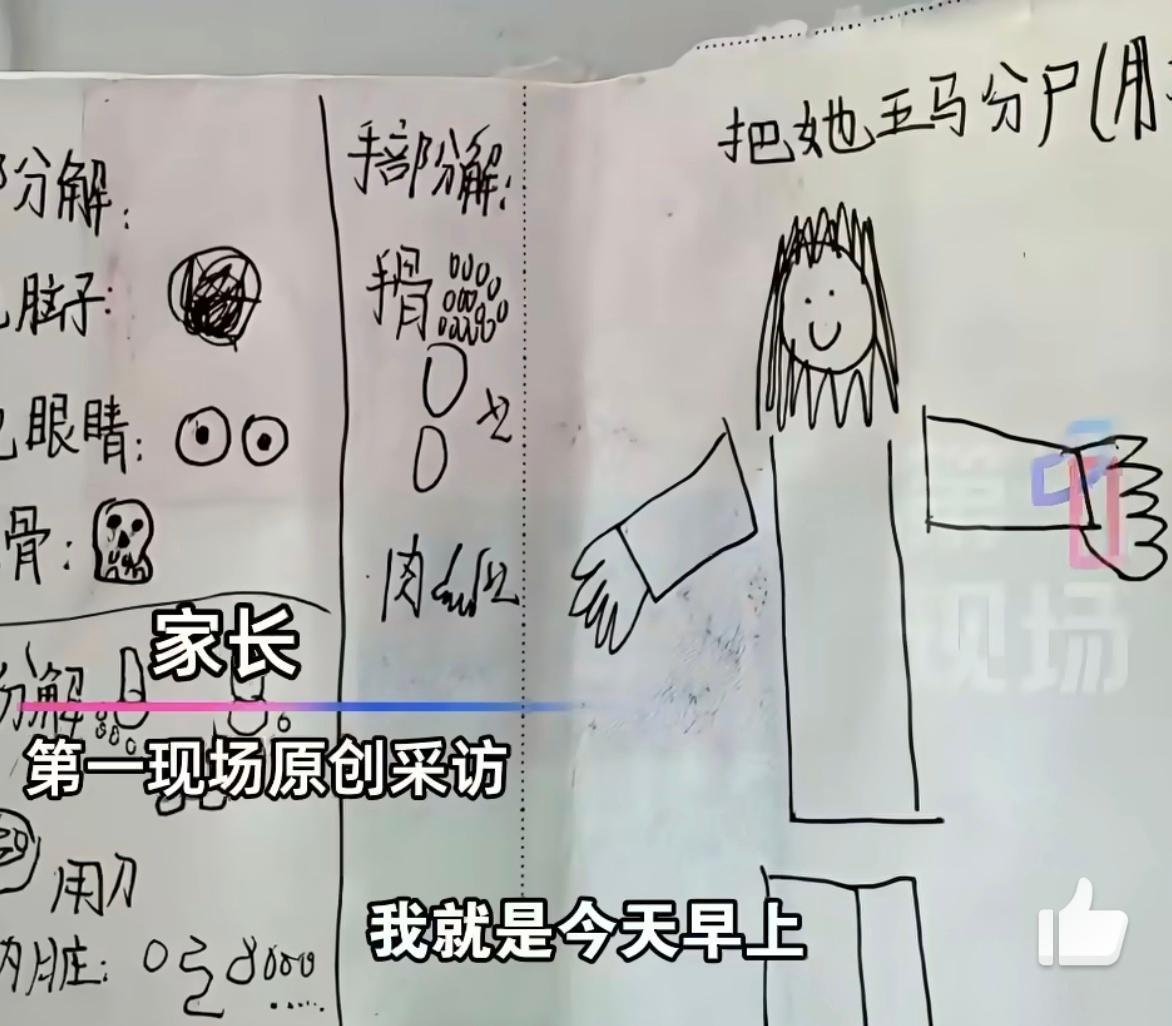 把她五马分尸(用
部分解:
脑子:
眼睛:
骨:
分解
用刀
内脏:
手部分解:
手骨
x2
肉 x2
家长
第一现场原创采访
我就是今天早上
第一
现场